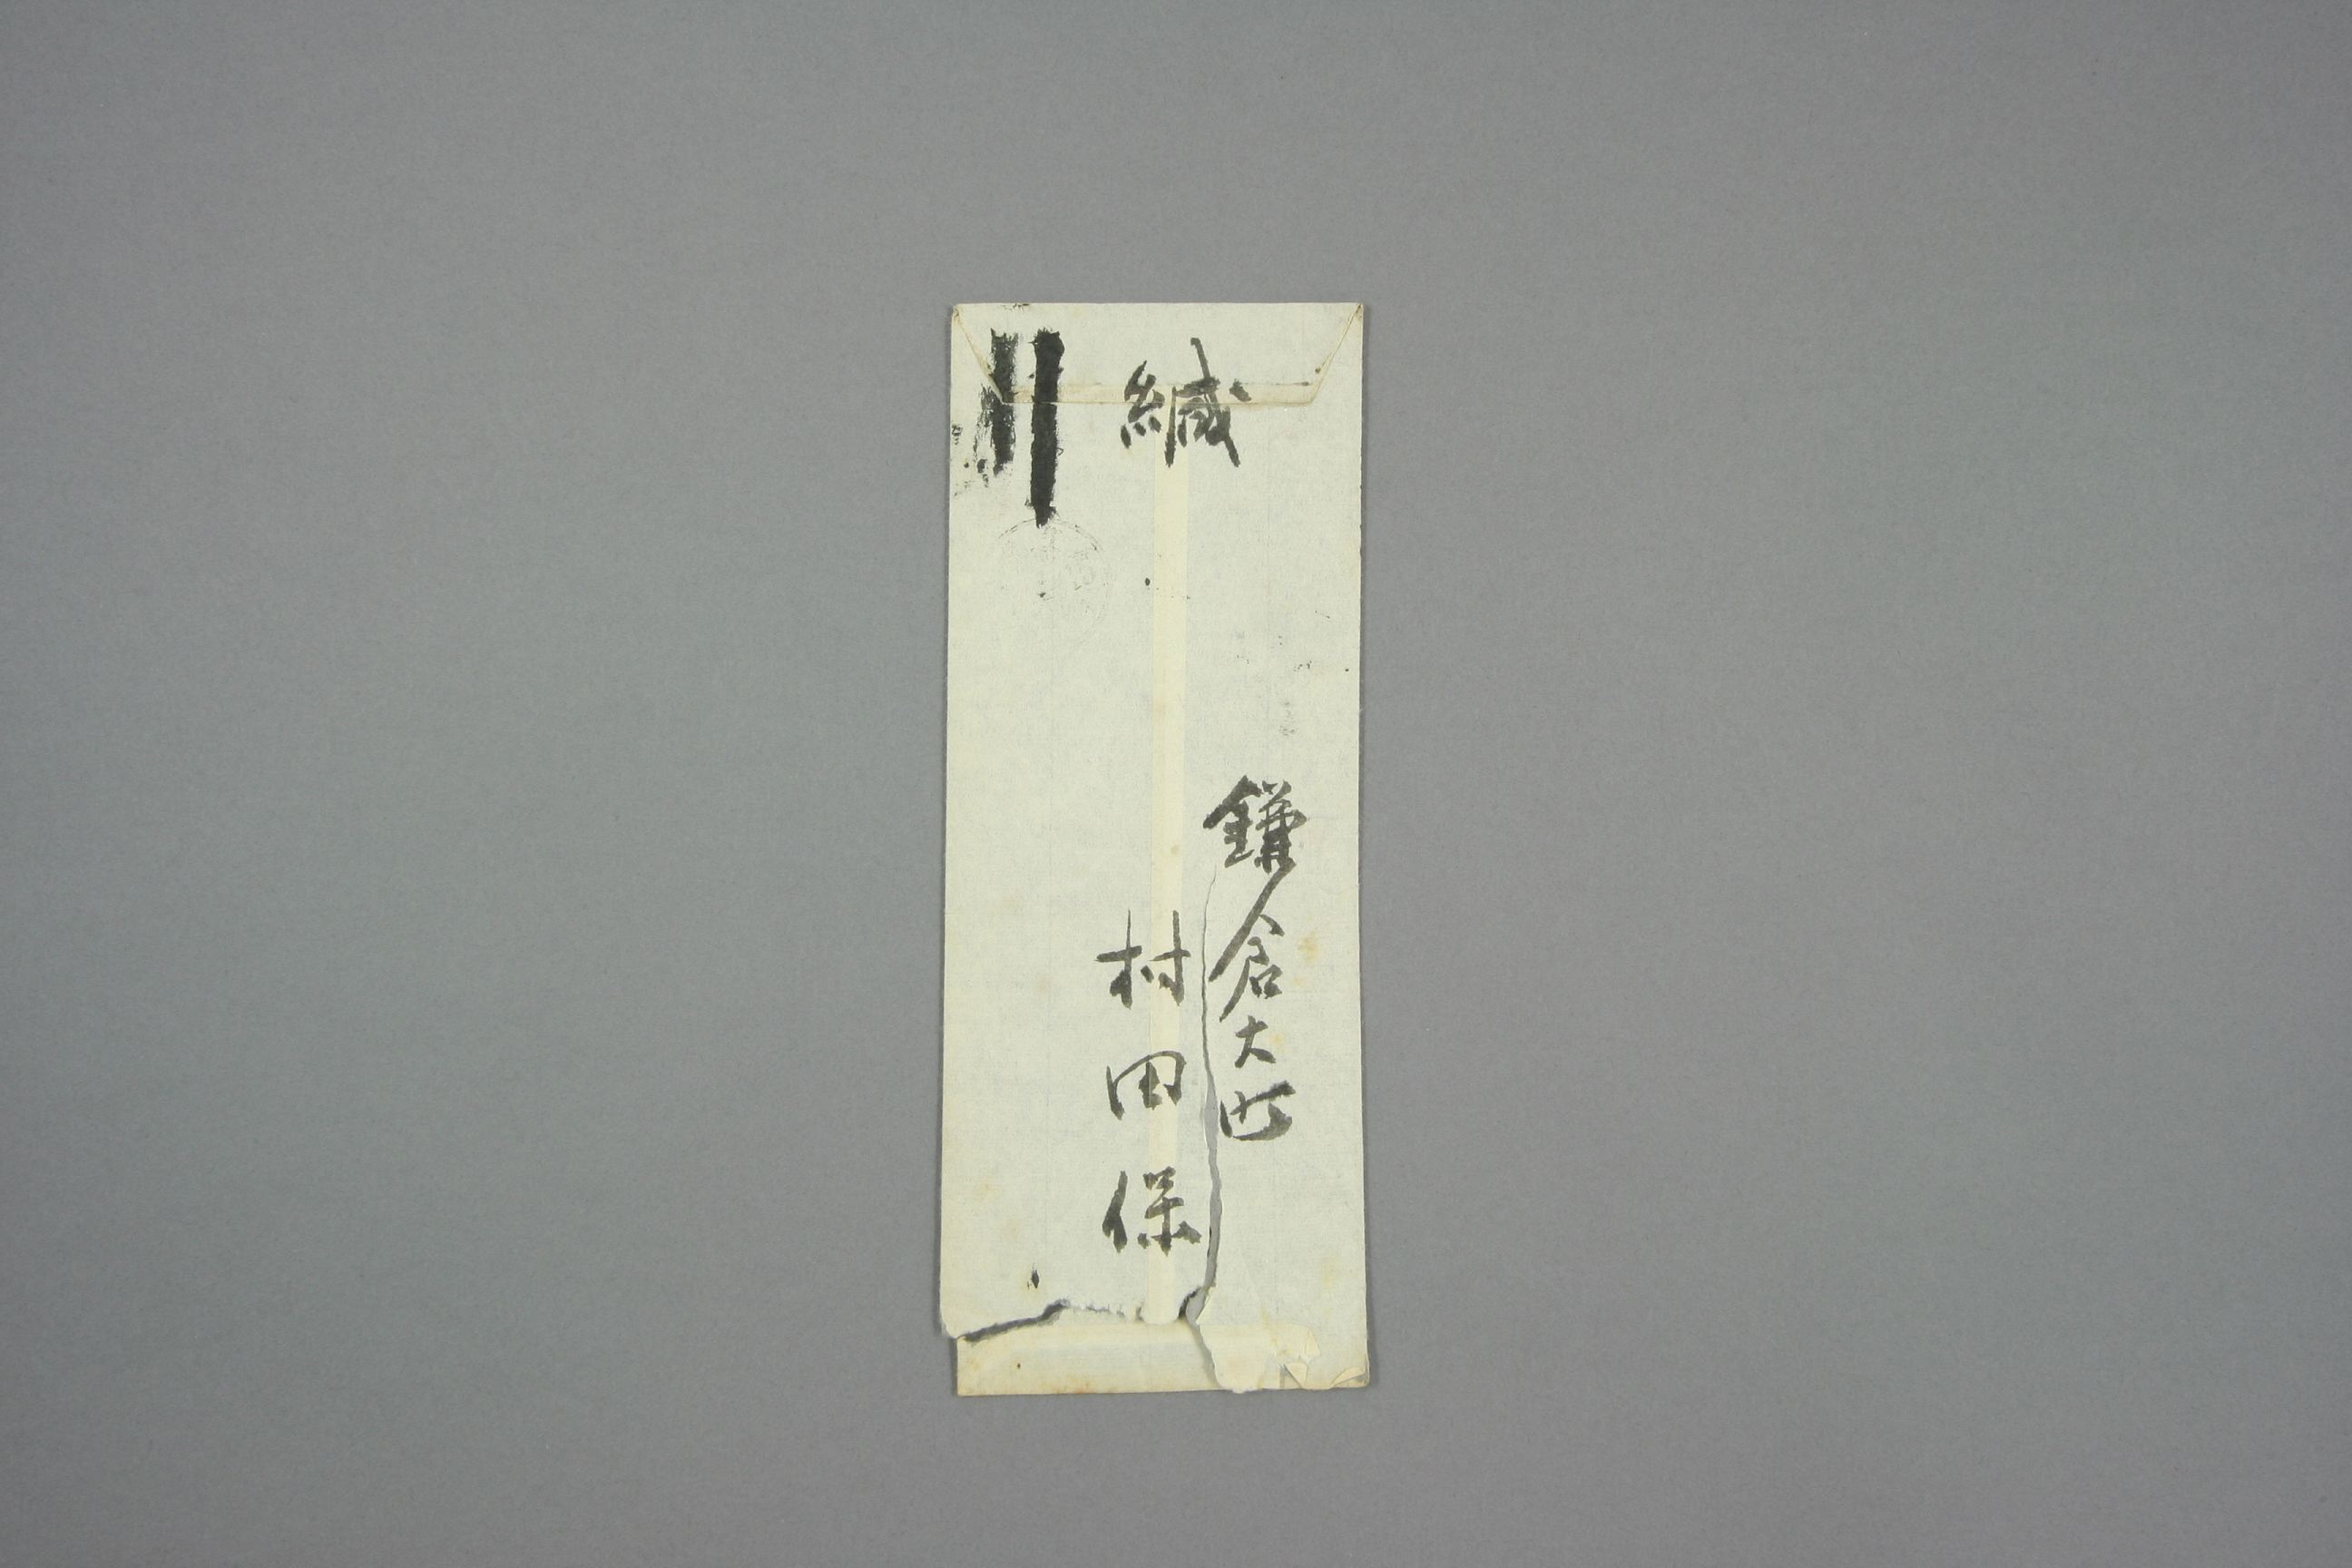 緘
鎌倉大町
村田保